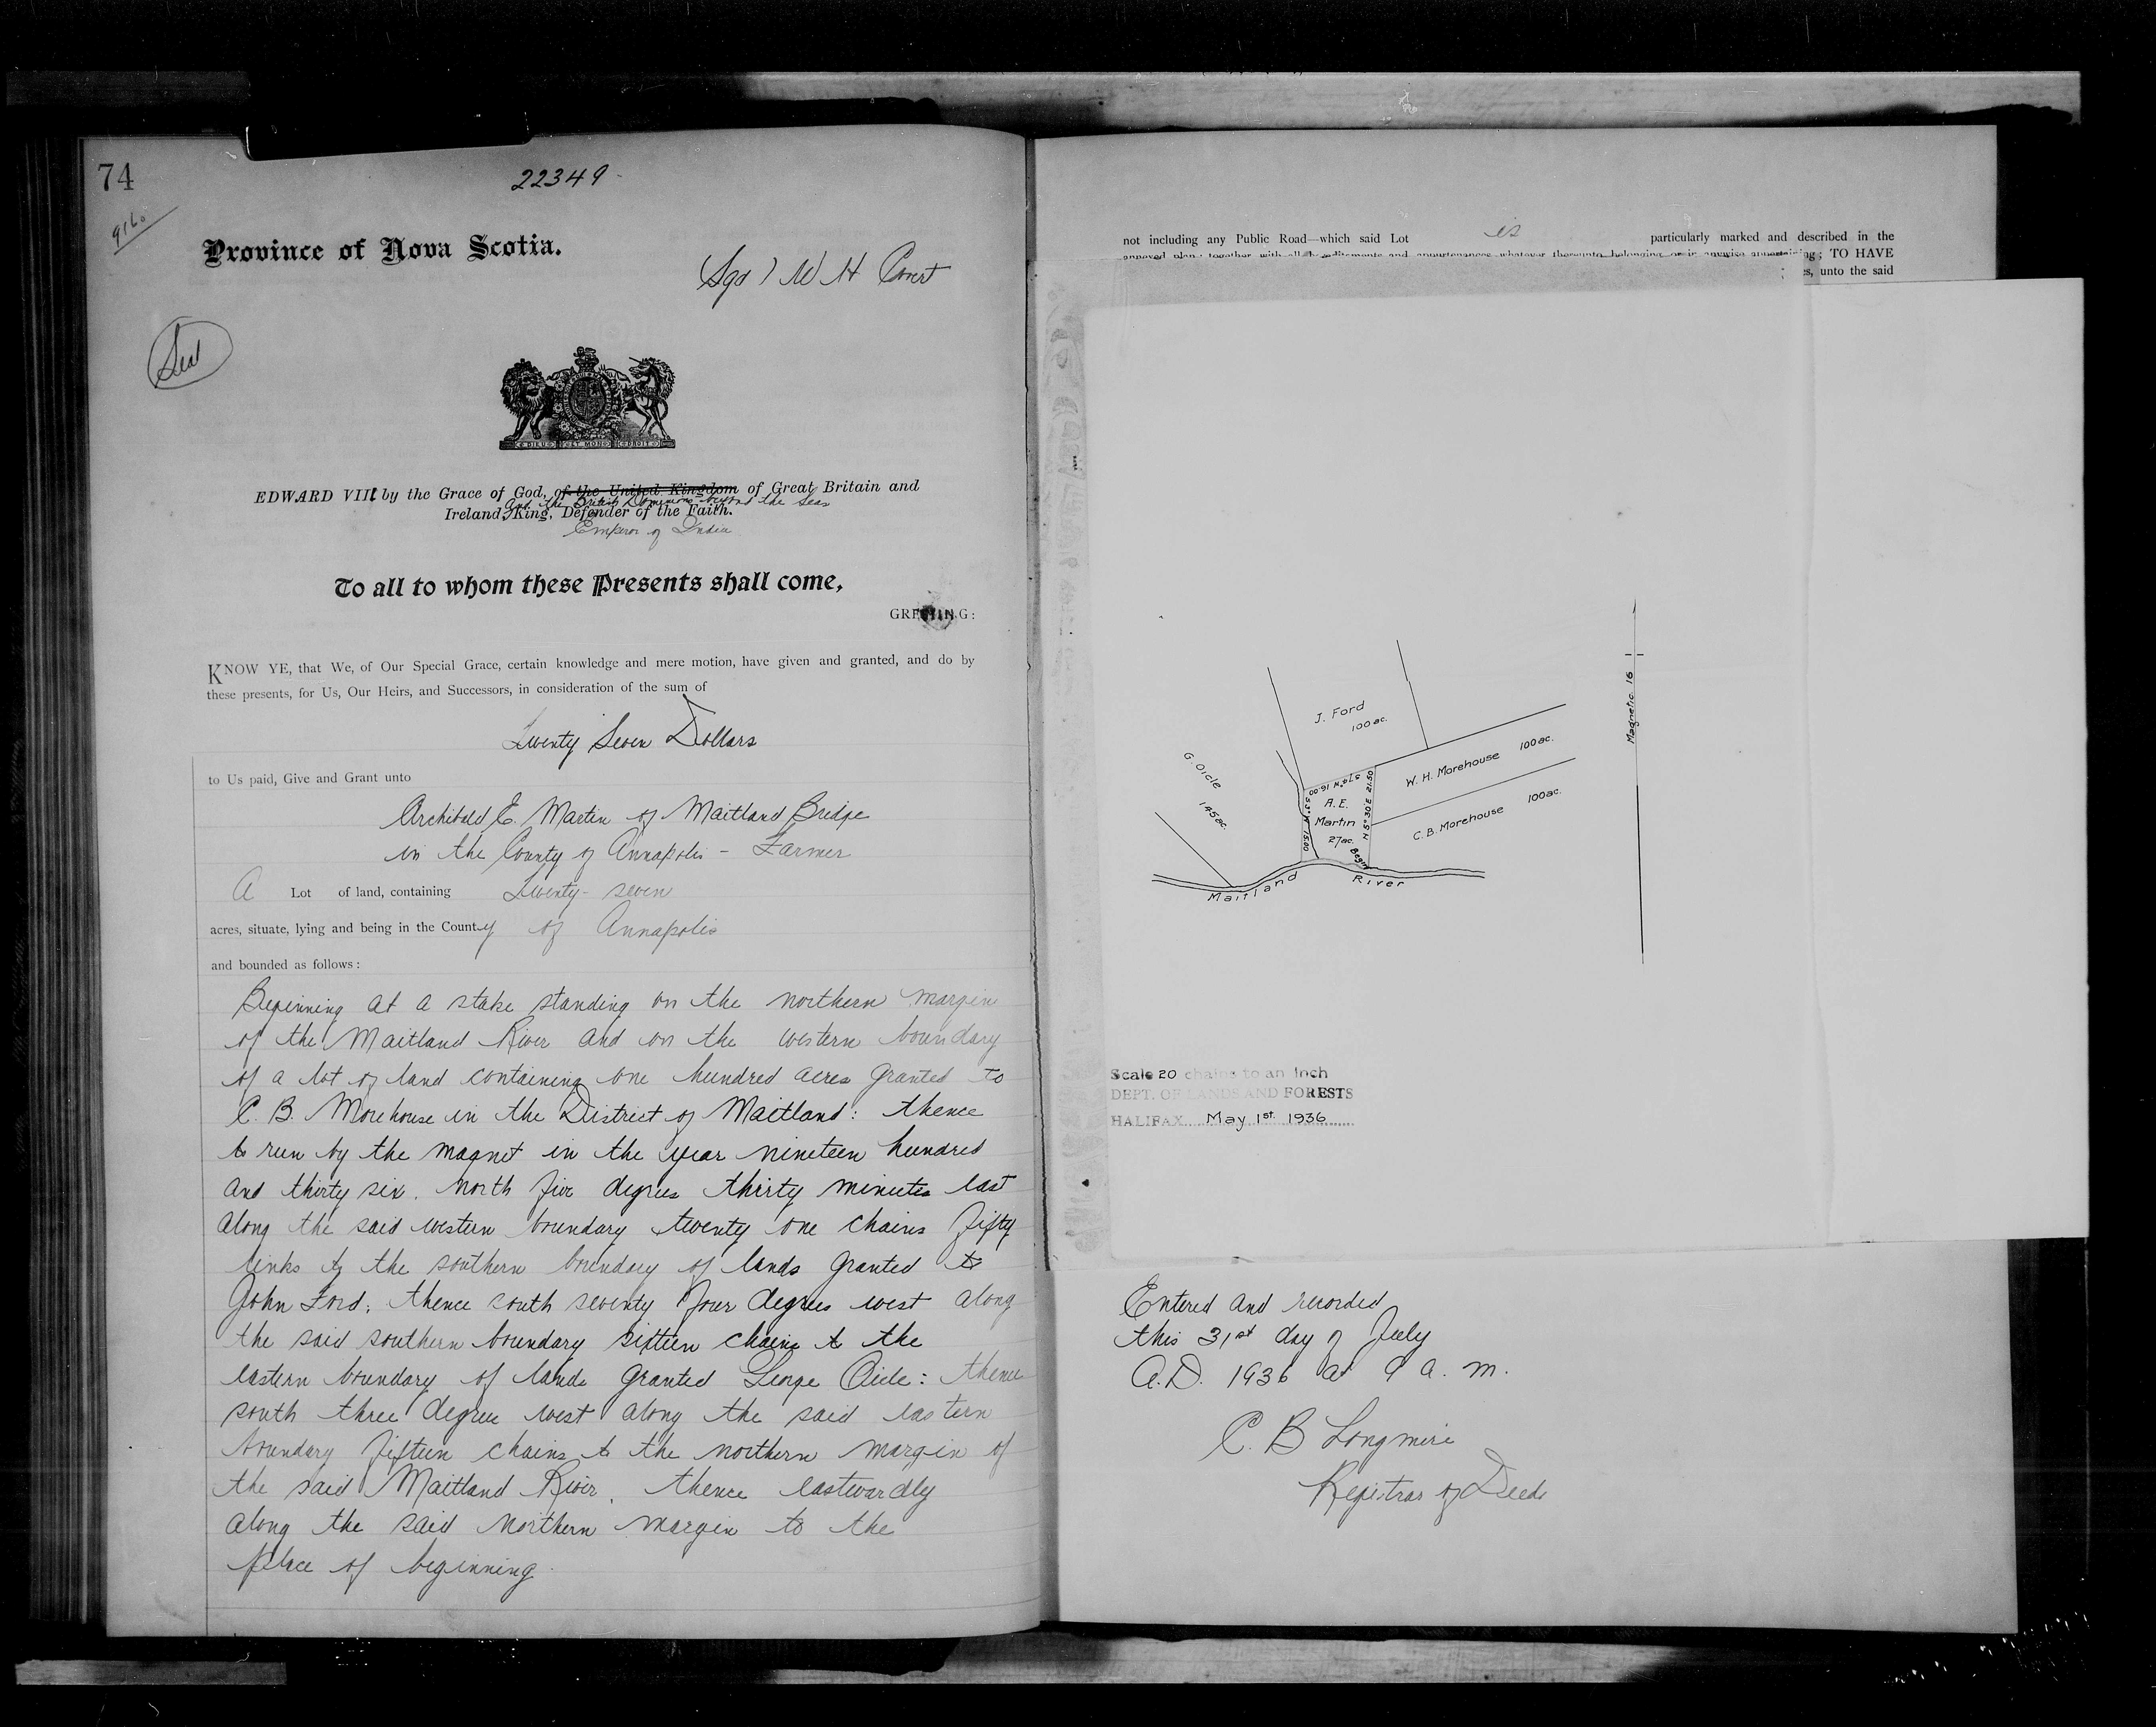 74
22349
Province of Nova Scotia.
(Sgd) W H Covert
DIEU ET MON DROIT
EDWARD VIII by the Grace of God, of the United Kingdom of Great Britain and
and the British Dominions beyond the Seas
Ireland, King, Defender of the Faith.
Emperor of India
To all to whom these Presents shall come,
GREETING:
KNOW YE, that We, of Our Special Grace, certain knowledge and mere motion, have given and granted, and do by
these presents, for Us, Our Heirs, and Successors, in consideration of the sum of
Twenty Seven Dollars
to Us paid, Give and Grant unto
Archibald E. Martin of Maitland Bridge
in the County of Annapolis - Farmer
A Lot of land, containing Twenty-seven
acres, situate, lying and being in the County of Annapolis
and bounded as follows:
Beginning at a stake standing on the northern margin
of the Maitland River and on the western boundary
of a lot of land containing one hundred acres granted to
C. B. Morehouse in the District of Maitland: thence
to run by the magnet in the year nineteen hundred
and thirty six. North five degrees thirty minutes East
along the said western boundary twenty one chains fifty
links to the southern boundary of lands granted to
John Ford: thence south seventy four degrees west along
the said southern boundary sixteen chains to the
eastern boundary of lands granted George Oicle: thence
south three degree west along the said eastern
boundary fifteen chains to the northern margin of
the said Maitland River, thence eastwardly
along the said Northern margin to the
place of beginning
not including any Public Road—which said Lot is particularly marked and described in the
annexed plan; together with all hereditaments and appurtenances whatever thereunto belonging or in anywise appertaining; TO HAVE
s, unto the said
J. Ford
100 ac.
Magnetic 16
G. Oicle
145 ac.
W. H. Morehouse 100 ac.
S 74° W 16.00
A. E.
Martin
27 ac.
S 3° W 15.00
N 5° 30' E 21.50
C. B. Morehouse 100 ac.
Begin
Maitland River
Scale 20 chains to an inch
DEPT. OF LANDS AND FORESTS
HALIFAX May 1st. 1936
Entered and recorded
this 31st day of July
A.D. 1936 at 9 a. m.
C. B Longmire
Registrar of Deeds